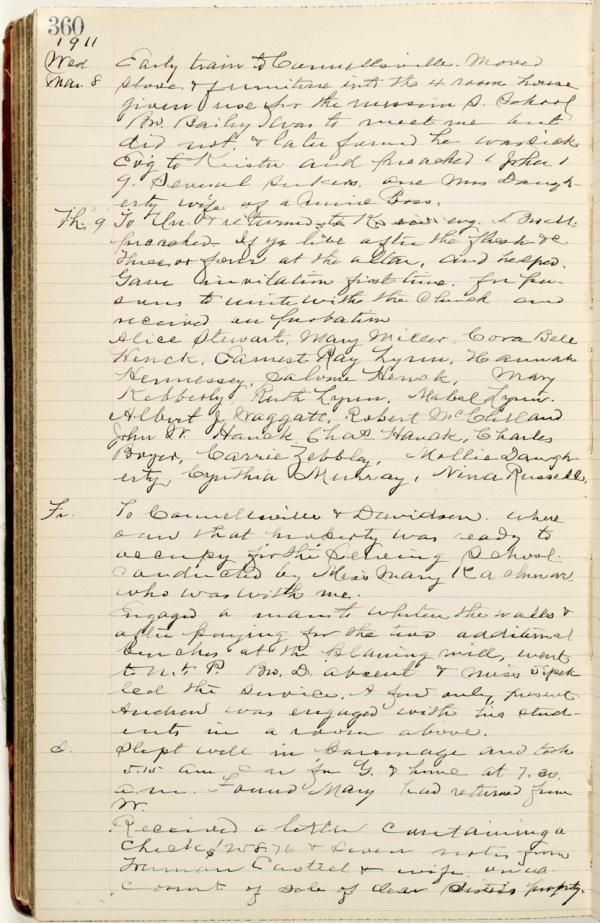 360
1911
Wed Early train to Connellsville. Moved
Mar. 8 stove & furniture into the 4 room house
given use for the mission S. School
Bro. Bailey was to meet me but
did not. & later found he was sick
Ev'g to and preached 1 John 1
9. Several seekers. one Mrs Daugh-
erty wife of a Mine Boss.
Th. 9 To Un. & returned to K eve'g.
preached. If ye live after the flesh &c
three or four at the altar, and helped.
Gave invitation first time. for per-
sons to unite with the Church and
received on probation
Alice Stewart, Mary Miller, Cora Bell
Henck, Earnest Ray Lynn, Hannah
Hennessey, Salome Henck, Mary
Kebberly Ruth Lynn, Mabel Lynn.
Albert J Waggatt, Robert McClelland
John W. Hauck Chas Hauck, Charles
Boyer, Carrie Zebbley, Mollie Daugh-
erty, Cynthia Murray, Nina Russell,
Fr. To Connellsville & Davidson. where
saw that property was ready to
occupy for the Sewing School
conducted by Miss Mary
who was with me.
Engaged a man to whiten the walls &
after paying for the two additional
benches at the Planing mill, went
to N. & P. Bro. D. absent & Miss
led the service. A few only present.
Andrew was engaged with his stud-
ents in a room above.
S. Slept well in Parsonage and took
5.15 am car for G. & home at 7.30.
a.m. Found Mary had returned from
W.
Received a letter containing a
check $ & seven notes from
Truman & wife on ac-
count of sale of dear Sister's property.